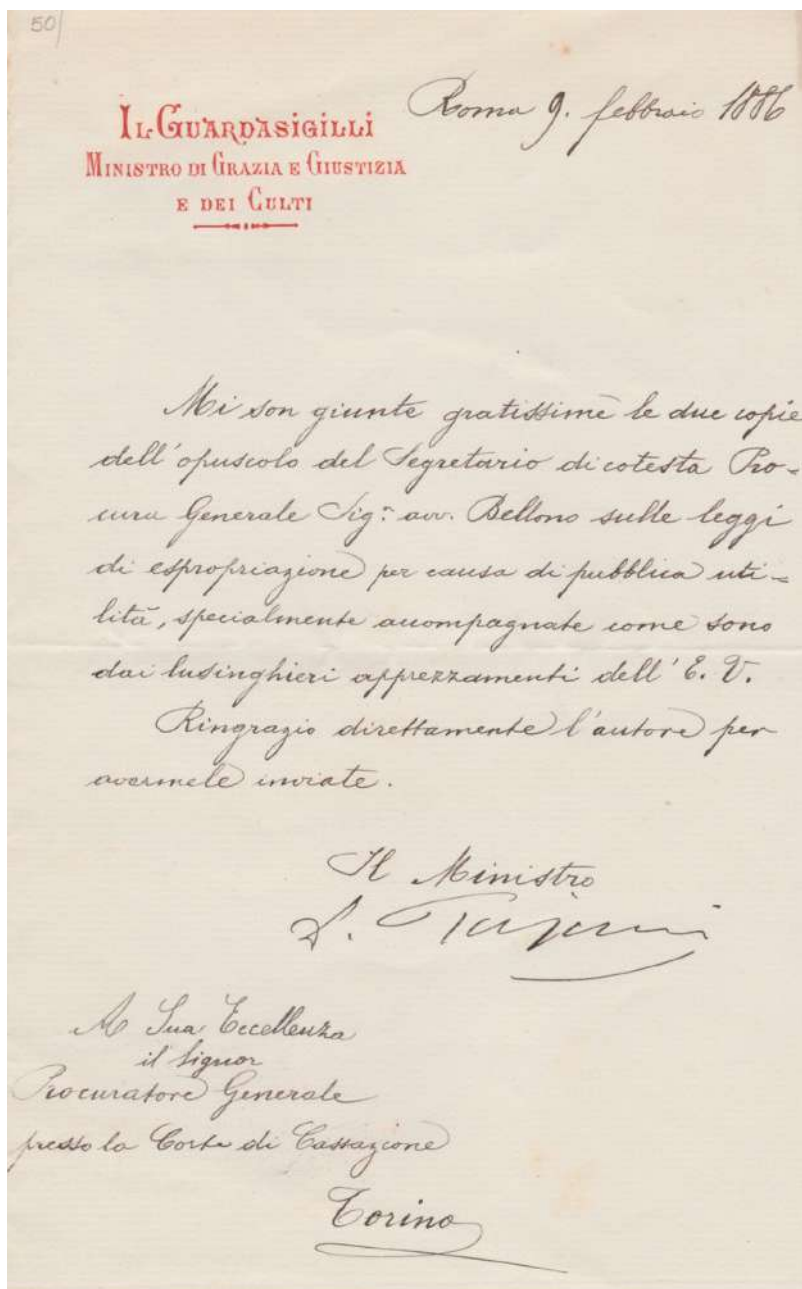 50
IL GUARDASIGILLI
MINISTRO DI GRAZIA E GIUSTIZIA
E DEI CULTI
Roma 9. febbraio 1886
Mi son giunte gratissime le due copie
dell'opuscolo del Segretario di cotesta Pro=
cura Generale Sig.r avv. Bellono sulle leggi
di espropriazione per causa di pubblica uti=
lità, specialmente accompagnate come sono
dai lusinghieri apprezzamenti dell'E. V.
Ringrazio direttamente l'autore per
avermele inviate.
Il Ministro
D. Tajani
A Sua Eccellenza
il Signor
Procuratore Generale
presso la Corte di Cassazione
Torino